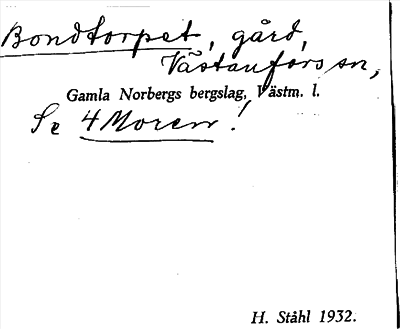 Bondtorpet, gård,
Västanfors sn,
Gamla Norbergs bergslag, Västm. l.
Se 4 Moren!
H. Ståhl 1932.